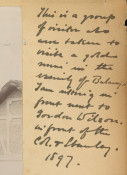 This is a group
of visitors who
were taken to
visit a gold
mine in the
vicinity of
I am sitting in
front next to
Gordon Wilson.
in front of the
C.R. &
1897.